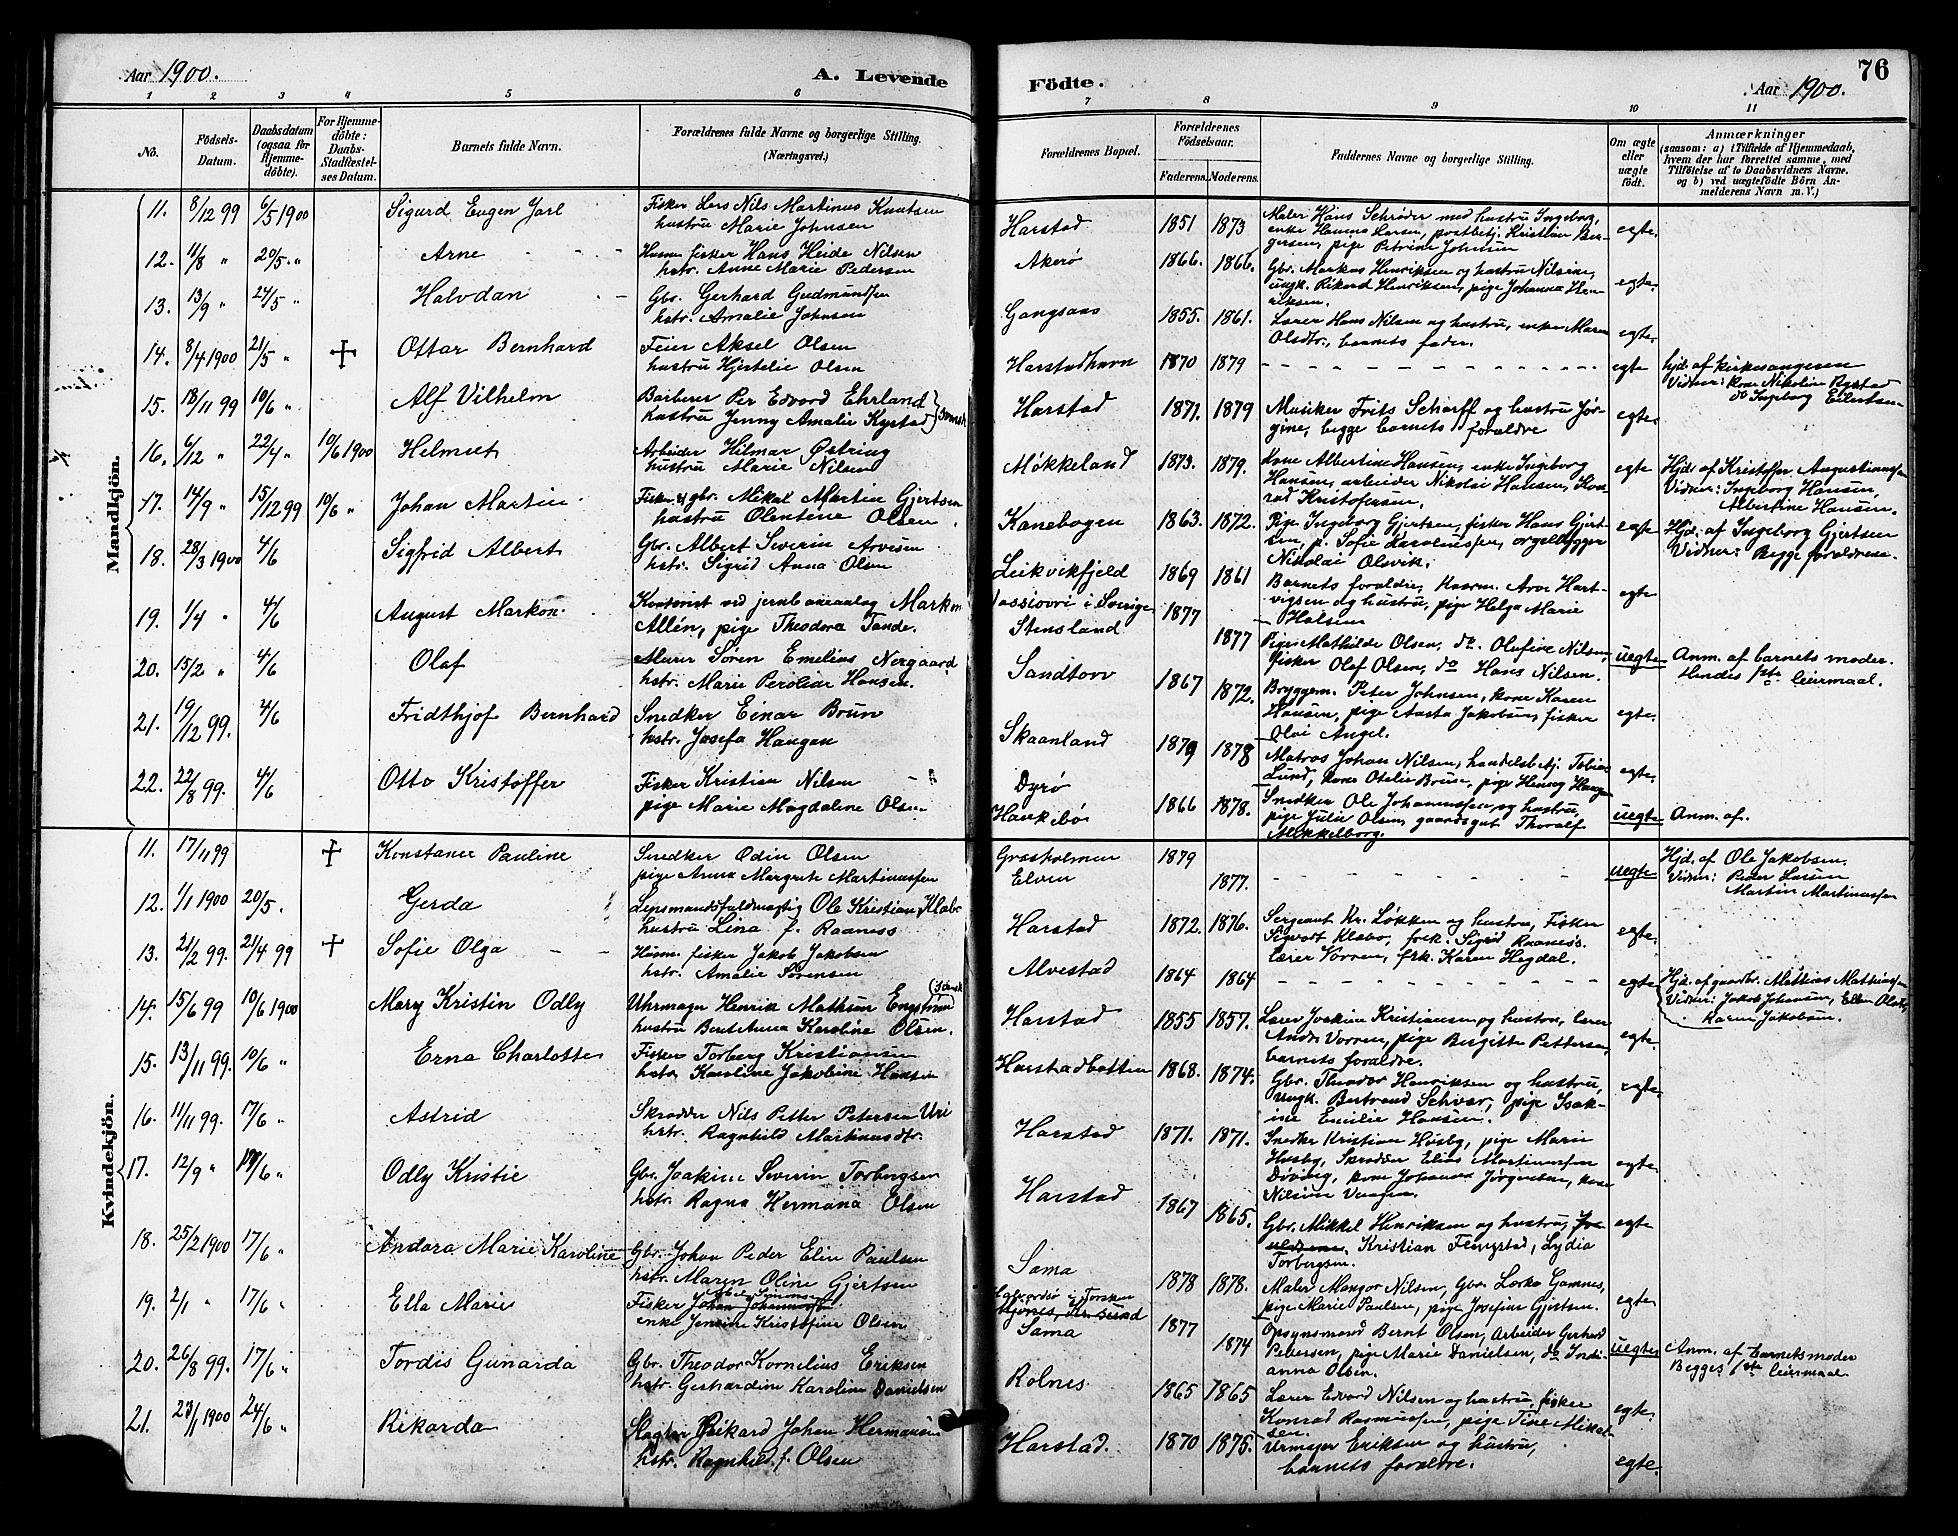 Aar 1900.
A. Levende
1 2 3 4 5 6
No.
Födsels-
Datum.
Daabsdatum
(ogsaa for
Hjemme-
döbte).
For Hjemme-
döbte:
Daabs-
Stadfæstel-
ses Datum.
Barnets fulde Navn.
Forældrenes fulde Navne og borgerlige Stilling.
(Næringsvei.)
Mandkjön.
11. 8/12 99 6/5 1900 Sigurd Eugen Jarl Fisker Lars Nils Martinus Knutsen
hustru Marie Johnsen
12. 11/8 " 20/5 " Arne Husm. fisker Hans Heide Nilsen
hstr. Anne Marie Pedersen
13. 13/9 " 24/5 " Halvdan Gbr. Gerhard Gudmundsen
hstr. Amalie Johnsen
14. 8/4 1900 21/5 " + Ottar Bernhard Feier Aksel Olsen
hustru Hjertelie Olsen
15. 18/11 99 10/6 " Alf Vilhelm Barberer Per Edvard Ehrland
hustru Jenny Amalie Kystad
16. 6/12 " 22/4 " 10/6 1900 Helmut Arbeider Hilmar Østring
hustru Marie Nilsen
17. 14/9 " 15/12 99 10/6 " Johan Martin Fisker & gbr. Mikal Martin Gjertsen
hustru Olentine Olsen
18. 28/3 1900 4/6 Sigfrid Albert Gbr. Albert Severin Arvesen
hstr. Sigrid Anna Olsen
19. 1/4 " 4/6 August Markon Kontorist ved jernbaneanlag Markon
Allén, pige Theodora Tande.
20. 15/2 " 4/6 Olaf Murer Søren Emelius Nergaard
hstr. Marie Peroline Hansen.
21. 19/12 99. 4/6 Fridthjof Bernhard Snedker Einar Brun
hstr. Josefa Haugan
22. 22/8 99. 4/6 Otto Kristoffer Fisker Kristian Nilsen
pige Marie Magdaline Olsen
Kvindekjön.
11. 17/11 99 + Konstance Pauline Snedker Odin Olsen
pige Anna Margrete Martinussen
12. 1/1 1900 20/5. Gerda Lensmandsfuldmægtig Ole Kristian Klæbo
hustru Lina f. Raaness
13. 21/2 99. 21/4 99 + Sofie Olga Husm. fisker Jakob Jakobsen
hstr. Amalie Sørensen
14. 15/6 99 10/6 1900 Mary Kristin Odly Uhrmager Henrik Mathson Engstrøm
hustru Berntetunna Karoline Olsen.
15. 13/11 99. 10/6 " Erna Charlotte Fisker Torberg Kristiansen
hstr. Karoline Jakobine Hansen
16. 11/11 99. 17/6 " Astrid Skrædder Nils Petter Petersen Uri
hstr. Ragnhild Martinusdtr.
17. 12/9 " 17/6 " Odly Kristie Gbr. Joakim Severin Torbergsen
hstr. Ragna Hermana Olsen
18. 25/2 1900 17/6 " Andora Marie Karoline Gbr. Johan Peder Elin Paulsen
hstr. Maren Oline Gjertsen
19. 2/1 " 17/6 " Ella Marie Fisker Johan Johannesen
enke Jensine Kristofine Olsen
20. 26/8 99. 17/6 " Tordis Gunarda Gbr. Theodor Kornelius Eriksen
hstr. Gerhardine Karoline Danielsen
21. 23/1 1900 24/6 " Rikarda Slagter Rikard Johan Hermansen
hstr. Ragnhild f. Olsen
76
Födte.
Aar 1900.
7 8 9 10 11
Forældrenes Bopæl.
Forældrenes
Födselsaar.
Faderens. Moderens.
Faddernes Navne og borgerlige Stilling.
Om ægte
eller
uægte
födt.
Anmærkninger
(saasom: a) i Tilfælde af Hjemmedaab,
hvem der har forrettet samme, med
Tilföielse af to Daabsvidners Navne.
og b) ved uægtefödte Börn An-
melderens Navn m. V.)
Harstad 1851 1873 Maler Hans Schrøder med hustru Ingeborg, egte.
enke Hanna Larsen, postbetj. Kristian Ber-
gersen, pige Petrine Johnsen
Akerø 1866. 1866. Gbr. Markus Henriksen og hustru Nilsine, egte.
ungk. Rikard Henriksen, pige Johanna Hen-
riksen.
Gangsaas 1855. 1861. Lærer Hans Nilsen og hustru, enke Maren egte.
Olsdtr., barnets fader.
Harstadhavn 1870 1879 - - - egte hjd. af kirkesangeren
Vidner: kone Nikoline Bystad
do Ingeborg Eilertsen
Harstad 1871. 1879 Musiker Frits Scherff og hustru Jør- egte.
gine, begge barnets forældre
Møkkeland 1873. 1879. Kone Albertine Hansen, enke Ingeborg egte Hjd. af Kristoffer Augustinussen
Hansen, arbeider Nikolai Hansen, Kon- Vidner: Ingeborg Hansen,
rad Kristofersen. Albertine Hansen.
Kanebogen 1863. 1872. Pige Ingeborg Gjertsen, fisker Hans Gjert- egte Hjd. af Ingeborg Gjertsen
sen, p. Sofie Karolinussen, orgelbygger Vidner: Begge forældrene.
Nikolai Olsvik.
Leikvikfjeld 1869 1861 Barnets forældre, Husm. Arve Hart- egte
vigsen og hustru, pige Helga Marie
Halsen
i Sverige 1877
Stensland 1877 Pige Mathilde Olsen, do. Olufine Nilsen, uegte Anm. af barnets moder.
fisker Olaf Olsen, do Hans Nilsen. Hendes 1ste leiermaal.
Sandtorv 1867 1872. Bryggem. Peter Johnsen, kone Karen egte.
Hansen, pige Aasta Jakobsen, fisker
Olai Angel.
Skaanland 1879 1878 Matros Johan Nilsen, handelsbetj. Tobias egte.
Lund, kone Otelie Brun, pige Hensy Haugan
Dyrø 1866
Haukebø 1878. Snedker Ole Johannessen og hustru, uegte Anm. af.
pige Julie Olsen, gaardsgut Thoralf
Mikkelborg.
Græsholmen 1879
Elven 1877. - - - uegte Hjd. af Ole Jakobsen.
Vidner: Peder Larsen
Martin Martinussen
Harstad 1872. 1876. Sergeant Kr. Løkken og hustru, Fisker egte.
Sigvart Klæbo, frk. Sigrid Raaness.
lærer Vorren, frk. Karen Hegdal.
Alvestad 1864 1864 - - - egte Hjd. af gaardbr. Mathias Mathiassen
Vidner: Jakob Johansen, Ellen Olsdtr,
Karen Jakobsen.
Harstad 1855 1857. Lærer Joakim Kristiansen og hustru, lærer egte.
Andr. Vorren, pige Birgitte Pettersen,
barnets forældre.
Harstadbotten 1868. 1874. Gbr. Theodor Henriksen og hustru, egte.
ungk. Bertrand Schivær, pige Isak-
ine Emilie Hansen.
Harstad 1871. 1871. Snedker Kristian Husby, pige Marie egte.
Husby, Skrædder Elias Martinussen
Døving, kone Johanna Jørgensen, kone
Nilsine Vaagen.
Harstad 1867 1865. Gbr. Mikkel Henriksen og hustru, egte
Kristian Flengstad, Lydia
Torbergsen.
Sama 1878 1878. Maler Mangor Nilsen, Gbr. Lorka Gamnes, egte.
pige Marie Paulsen, pige Josefine Gjertsen.
i Torsken 1877
Sama 1874 Opsynsmand Bernt Olsen, Arbeider Gerhard uegte Anm. af barnets moder
Petersen, pige Marie Danielsen, do Indi- Begges 1ste leiermaal.
anna Olsen.
Rolnes 1865 1865 Lærer Edvard Nilsen og hustru, fisker egte.
Konrad Rasmussen, pige Tine Mikkel-
sen.
Harstad. 1870 1875. Urmager Eriksen og hustru, egte.
barnets forældre.